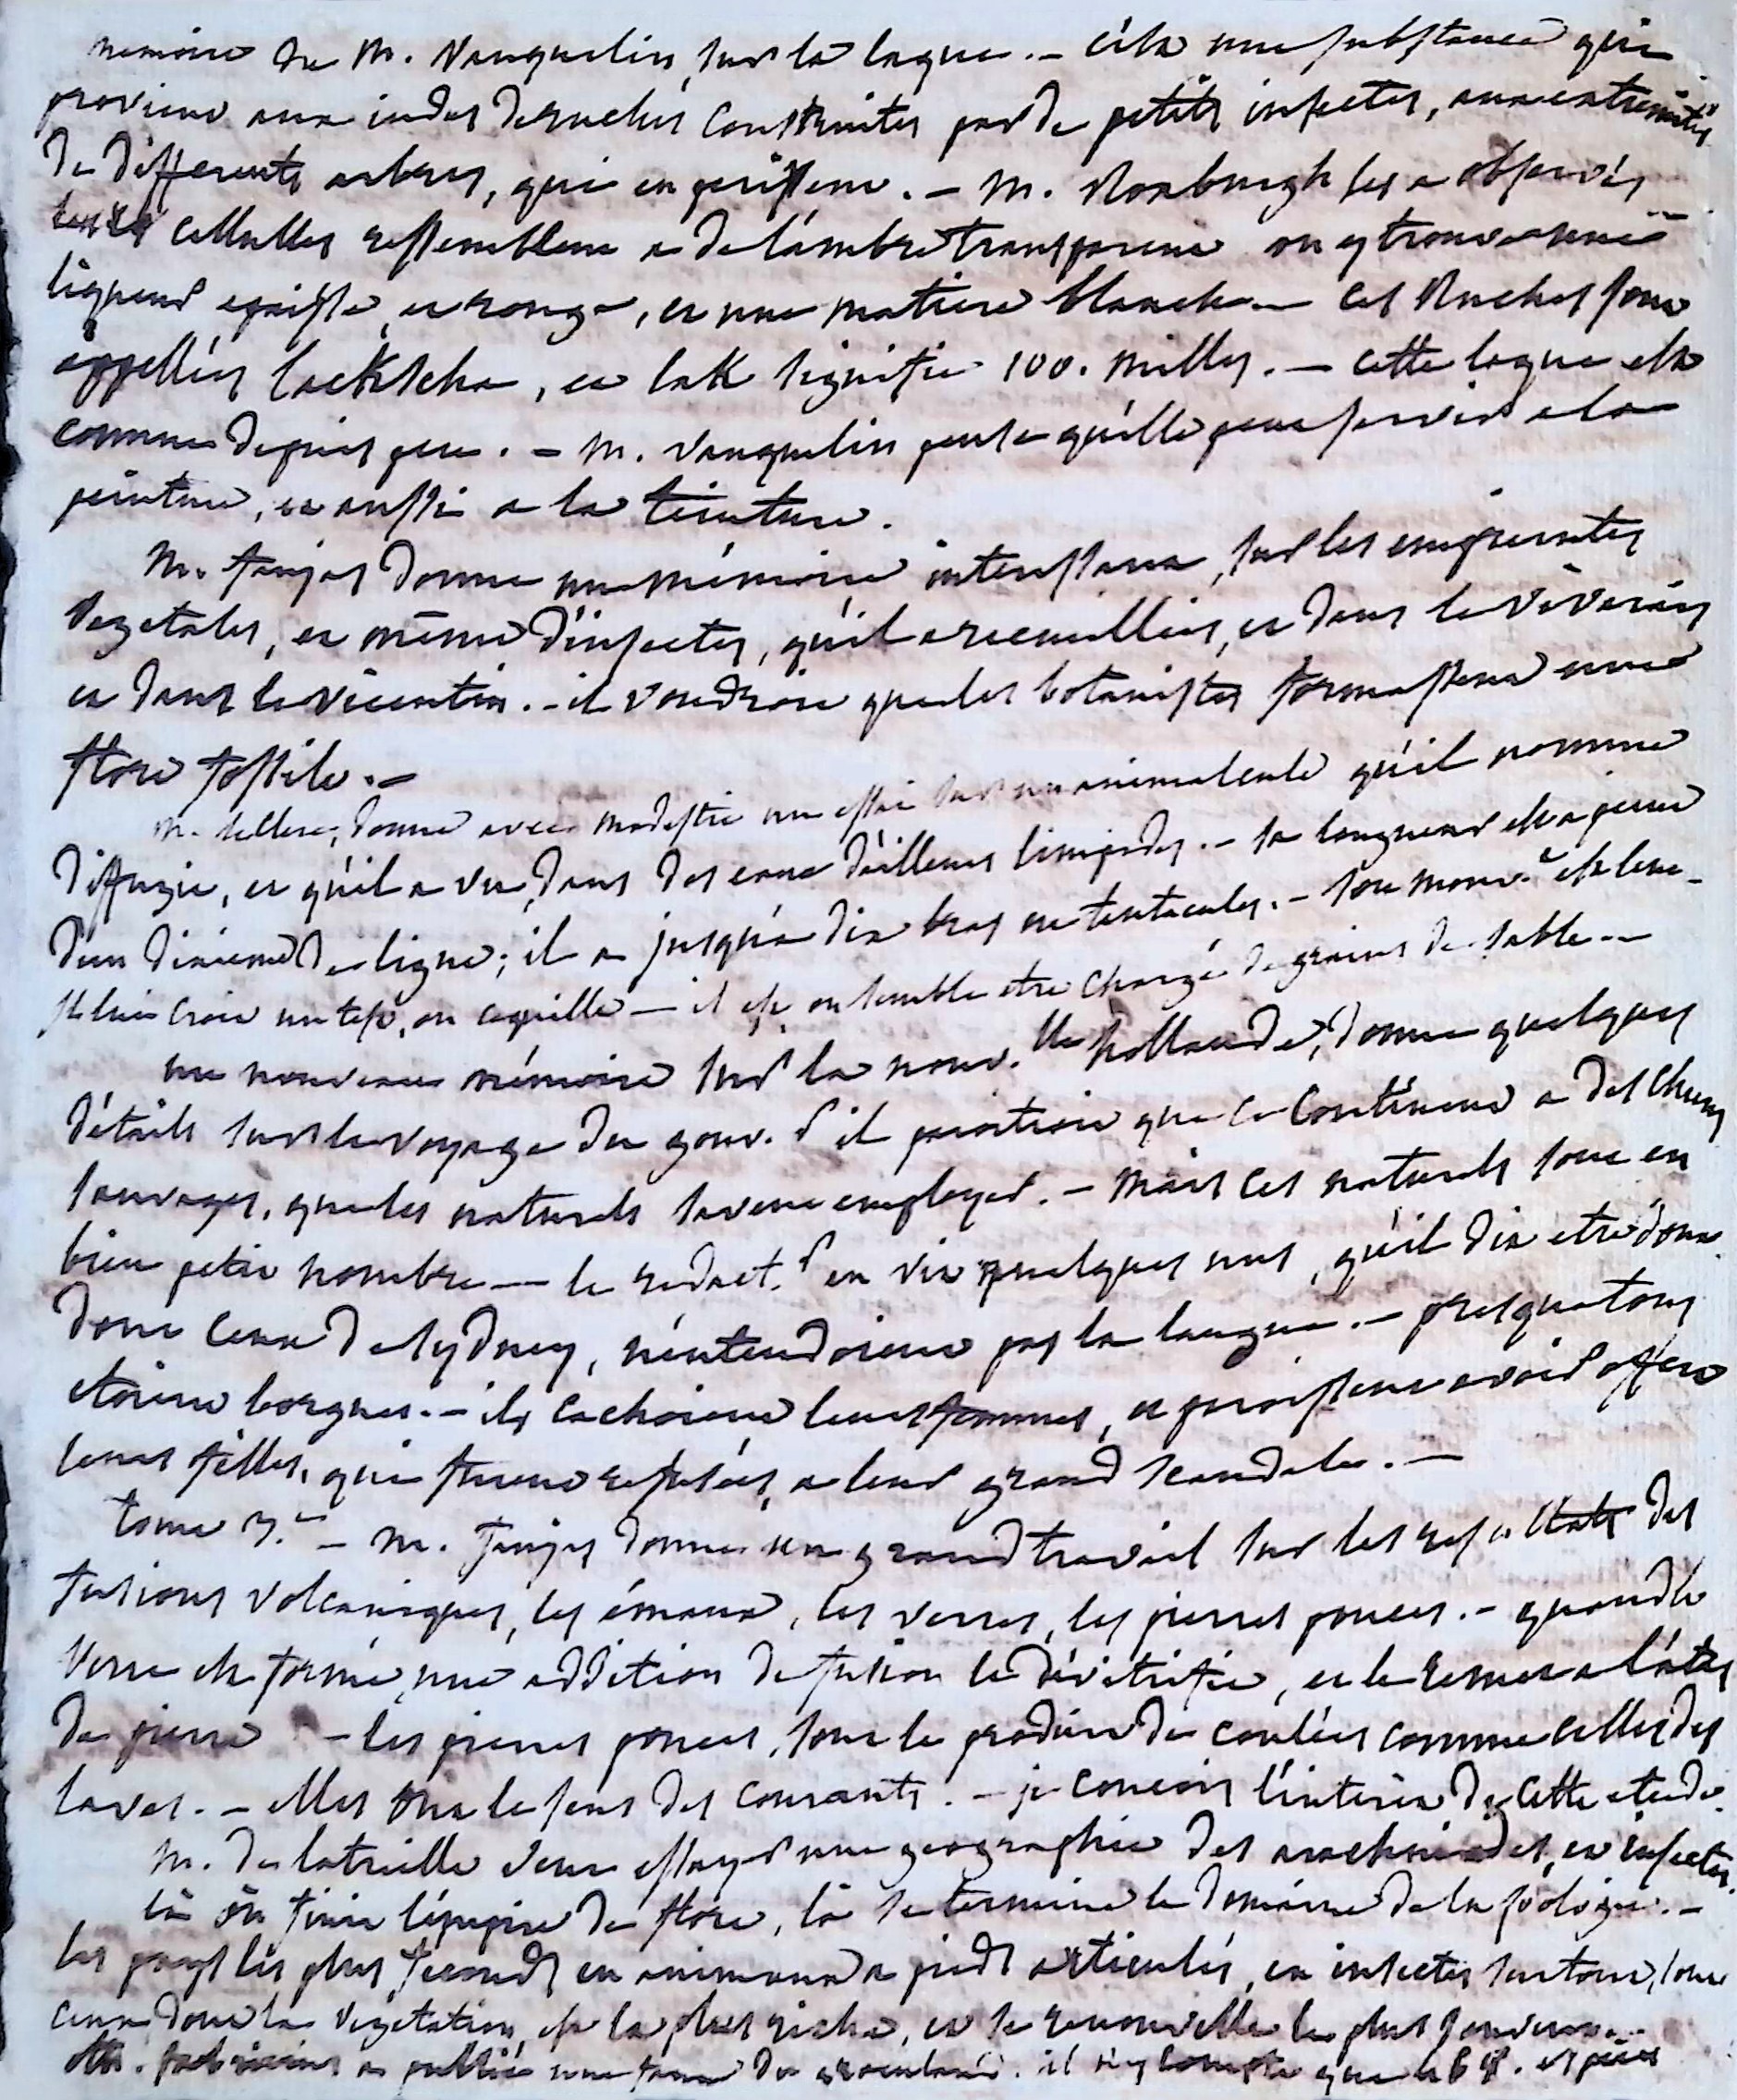 memoire de M. Vauquelin, sur la laque. - c'est une substance qui
provient aux indes de ruches construites par de petits insectes, aux extremités
de differents arbres, qui en perissent. - M. Roxburgh les a observés
cellulles ressemblent a de l'ambre transparent on y trouve une
liqueur epaisse, et rouge, et une matiere blanche. - ces Ruches sont
appellées lacktcha, et lak signifie 100. milles. - cette laque est
connue depuis peu. - M. Vauquelin pense qu'elle peut servir a la
peinture, et aussi a la teinture.
M. faujas donne un mémoire interessant, sur les empreintes
vegetales, et même d'insectes, qu'il a recueillies, et dans le vivarais
et dans le vicentin. - il voudroit que les botanistes formassent une
flore fossile. -
M. donne avec modestie un essai sur un animalcule qu'il nomme
difflugie, et qu'il a vu, dans des eaux d'ailleurs limpides. - sa longueur est a peine
d'un dixieme de ligne; il a jusqu'a dix bras ou tentacules. - son mouv.t est lent -
il lui croit un test, ou coquille - il est, ou semble etre chargé de grains de sable. -
un nouveau mémoire sur la nouv.lle hollande, donne quelques
détails sur le voyage du gouv.r il paroitroit que ce continent a des chiens
sauvages, que les naturels savent employer. - Mais ces naturels sont en
bien petit nombre - le redact.r en vit quelques uns, qu'il dit etre doux
dont ceux de sydney, n'entendoient pas la langue. - presque tous
etoient borgnes. - ils cachoient leurs femmes, et paroissent avoir offert
leurs filles, qui furent refusées, a leur grand scandale. -
tome - M. faujas donne un grand travail sur les resultats des
fusions volcaniques, les émaux, les verres, les pierres ponces. - quand le
verre est formé, une addition de fusion le dévitrifie, et le remet a l'état
de pierre - les pierres ponces, sont le produit de coulées comme celles des
laves. - elles ont le sens des courants. - je conçois l'interêt de cette etude.
M. de latreille veut essayer une geographie des arachnides, et insectes.
là où finit l'empire de flore, là se termine le domaine de la zoologie. -
les pays les plus feconds en animaux a pieds articulés, en insectes surtout, sont
ceux dont la vegetation, est la plus riche, et se renouvelle le plus souvent. -
oth. fabricius a publié une faune du groenland. il n'y compte que 468. especes